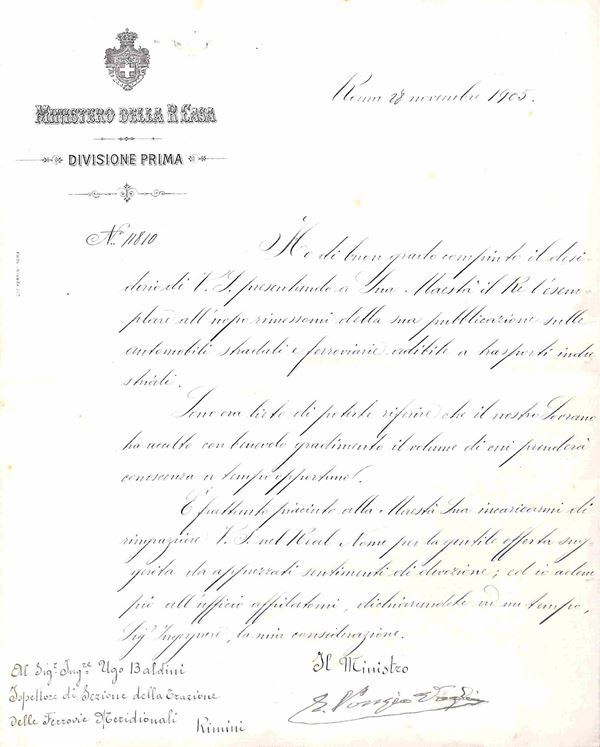 MINISTERO DELLA R. CASA
DIVISIONE PRIMA
Roma 28 novembre 1905.
No. 11810
Ho di buon grado compiuto il desi-
derio di V. S. presentando a Sua Maestà il Re l'esem-
plare all'uopo rimessomi della sua pubblicazione sulle
automobili stradali e ferroviarie adibite a trasporti indu
striali.
Sono ora lieto di poterle riferire che il nostro Sovrano
ha accolto con benevolo gradimento il volume di cui prenderà
conoscenza a tempo opportuno.
È frattanto piaciuto alla Maestà Sua incaricarmi di
ringraziare V. S. nel Real Nome per la gentile offerta sug-
gerita da apprezzati sentimenti di devozione; ed io adem-
pio all'ufficio affidatomi, dichiarandole ad un tempo,
Sigr. Ingegnere, la mia considerazione.
Il Ministro
Al Sigr. Ingre. Ugo Baldini
Ispettore di Sezione della Trazione
delle Ferrovie Meridionali
Rimini